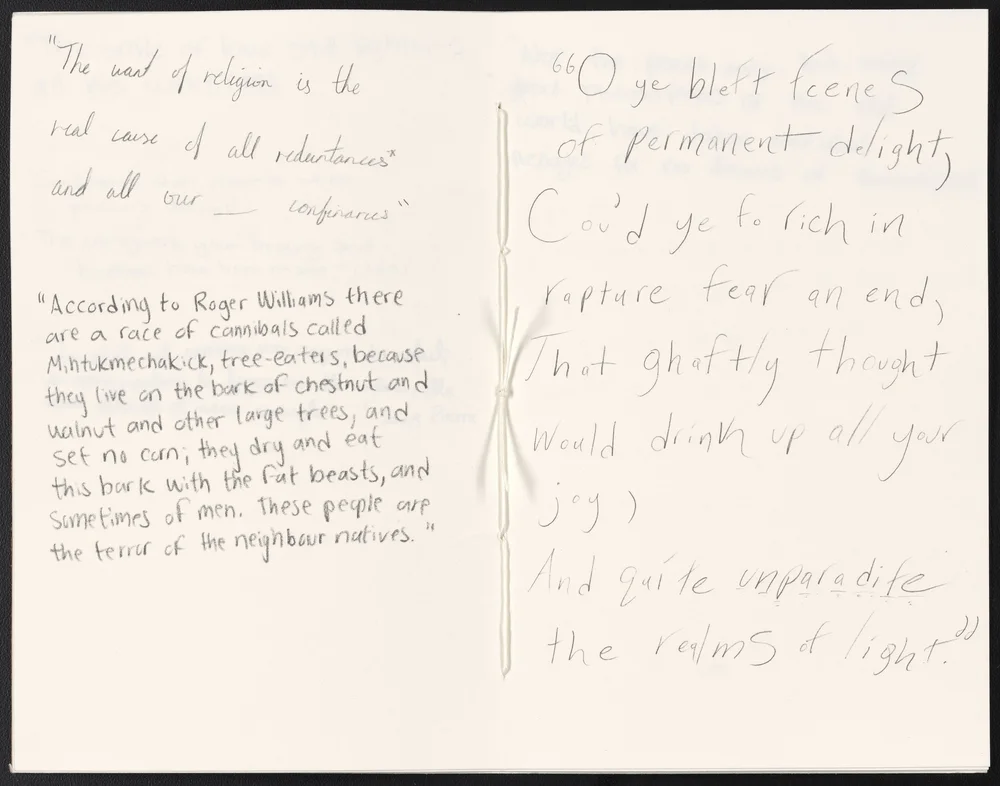 "The want of religion is the
real cause of all reductances*
and all our __ confinaries"
"According to Roger Williams there
are a race of cannibals called
Mihtukmechakick, tree-eaters, because
they live on the bark of chestnut and
walnut and other large trees, and
set no corn; they dry and eat
this bark with the fat beasts, and
Sometimes of men. These people are
the terror of the neighbour natives."
"O ye bleſt ſceneS
of permanent delight,
Cou'd ye ſo rich in
rapture fear an end,
That ghaſtly thought
Would drink up all your
joy,
And quite unparadiſe
the realmS of light."